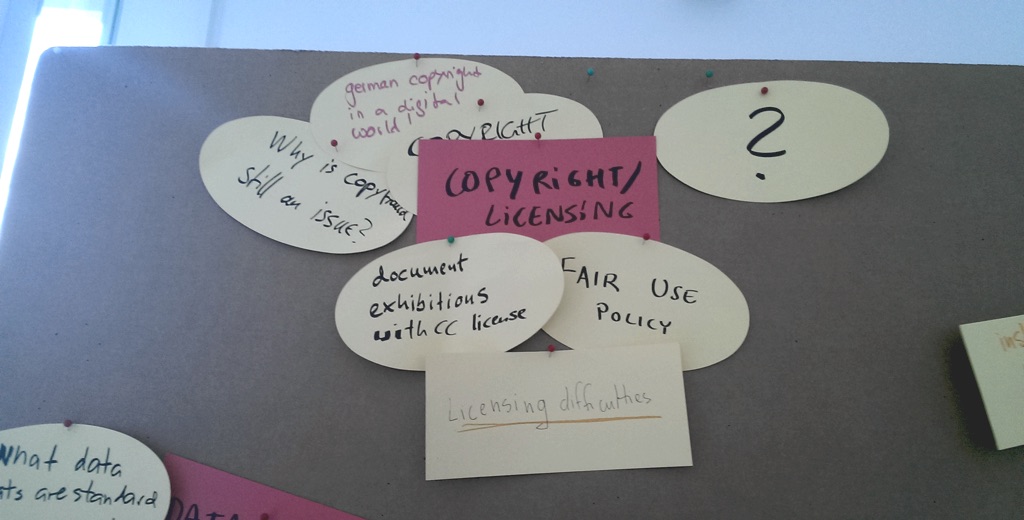 german copyright
in a digital
world!
COPYRIGHT
Why is copyfraud
still an issue?
COPYRIGHT/
LICENSING
?
document
exhibitions
with CC license
FAIR USE
POLICY
Licensing difficulties
What data
are standard
DATA